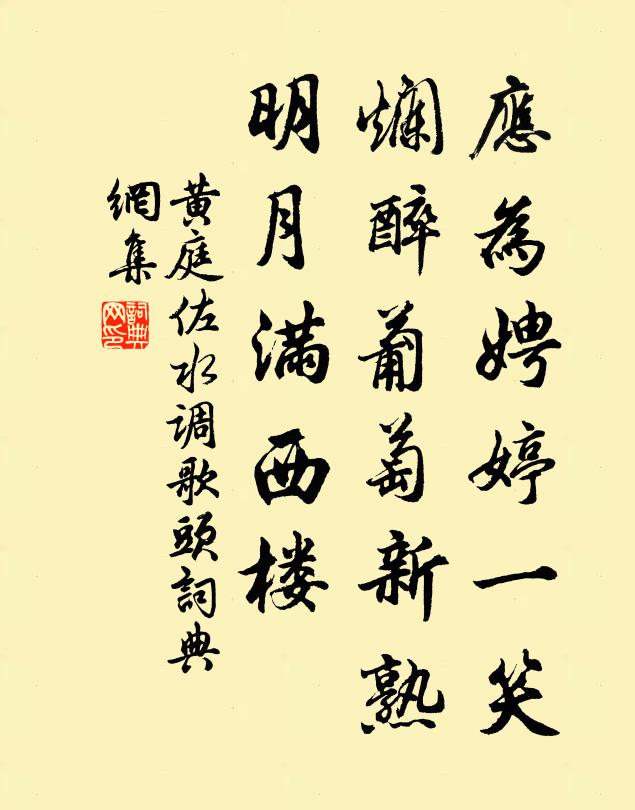 應為娉婷一笑
爛醉葡萄新熟
明月滿西楼
黄庭佐水调歌頭詞典
網集
詞典
网印